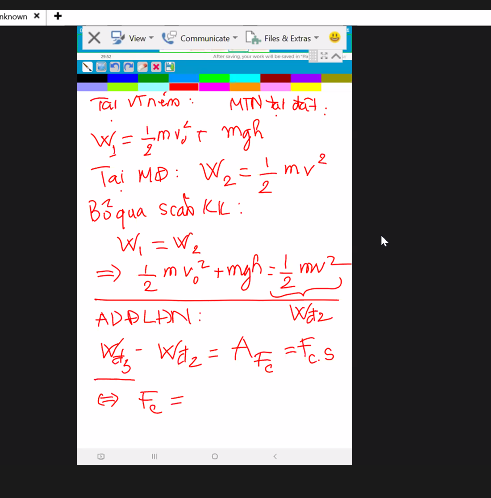 nknown × +
View Communicate Files & Extras
29:02 After saving your work will be saved in "the
Tại VT ném: MTN tại đất:
W₁ = 1/2 m v₀² + mgh
Tại MĐ: W₂ = 1/2 m v²
Bỏ qua scản KK:
W₁ = W₂
⇒ 1/2 m v₀² + mgh = 1/2 mv²
Wđ2
ADĐLĐN:
Wđ3 - Wđ2 = A_Fc = Fc.s
⇔ Fc =